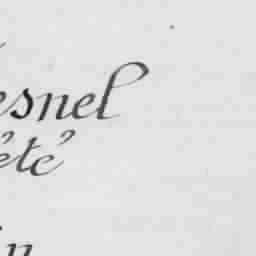 esnel
été
in